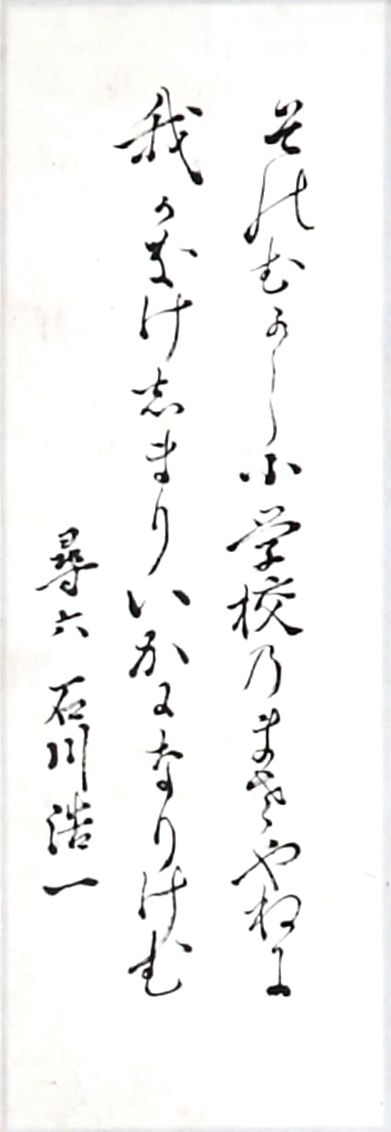 そのむかし小学校乃まさやねに
我かなけしまりいかになりけむ
尋六 石川浩一